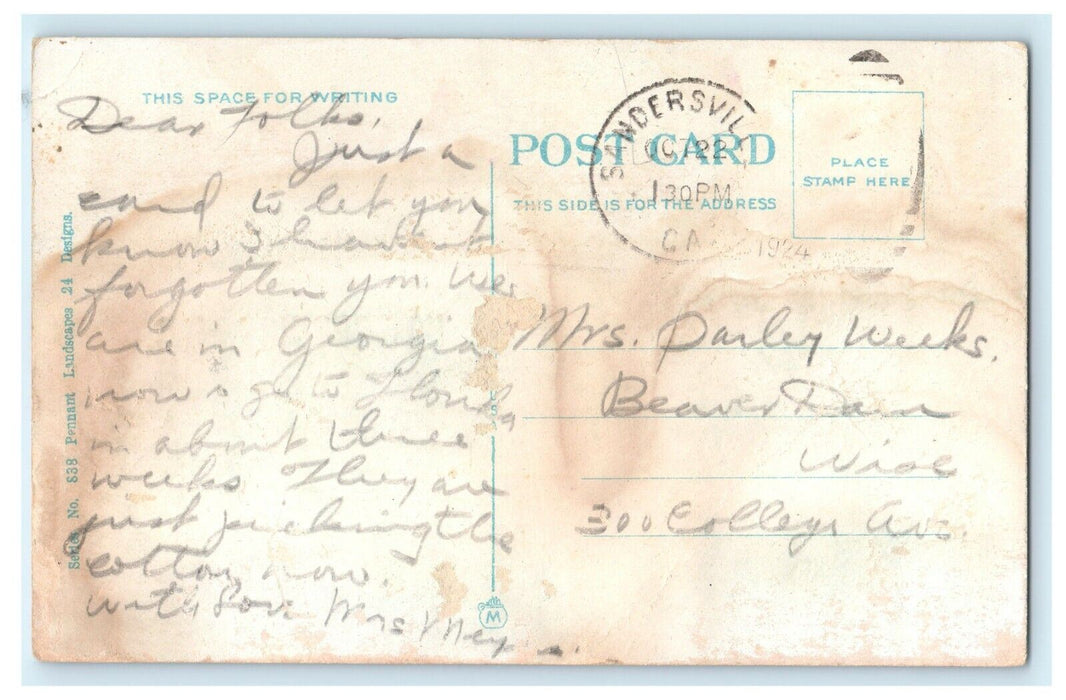 THIS SPACE FOR WRITING
Dear Folks,
Just a
card to let you
know I havent
forgotten you. We
are in Georgia
now & go to Florida
in about three
weeks They are
just picking the
cotton, now.
with Love Mrs Mey
Series No. 838 Pennant Landscapes 24 Designs.
M
POST CARD
THIS SIDE IS FOR THE ADDRESS
SANDERSVIL
OCT 22
130PM
GA
1924
PLACE
STAMP HERE
Mrs. Parley Weeks.
Beaver Dam
Wisc
300 College Ave.